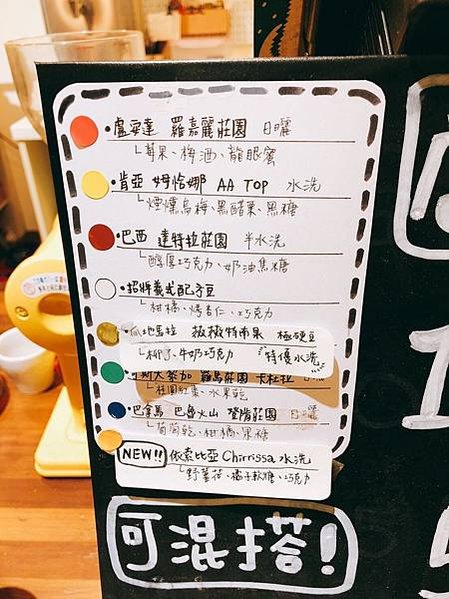 盧安達 羅嘉麗莊園 日曬
莓果、梅酒、龍眼蜜
肯亞 姆恰娜 AA TOP 水洗
煙燻烏梅、黑醋栗、黑糖
巴西 達特拉莊園 半水洗
醇厚巧克力、奶油焦糖
招牌義式配方豆
柑橘、烤杏仁、巧克力
瓜地馬拉 薇薇特南果 極硬豆
柳丁、牛奶巧克力 "特優水洗"
哥斯大黎加 羅馬莊園 卡杜拉 日曬
桂圓紅棗、水果乾
巴拿馬 巴魯火山 瑩階莊園 日曬
葡萄乾、柑橘、果糖
NEW!! 依索比亞 Chirrissa 水洗
野薑花、橘子軟糖、巧克力
可混搭!